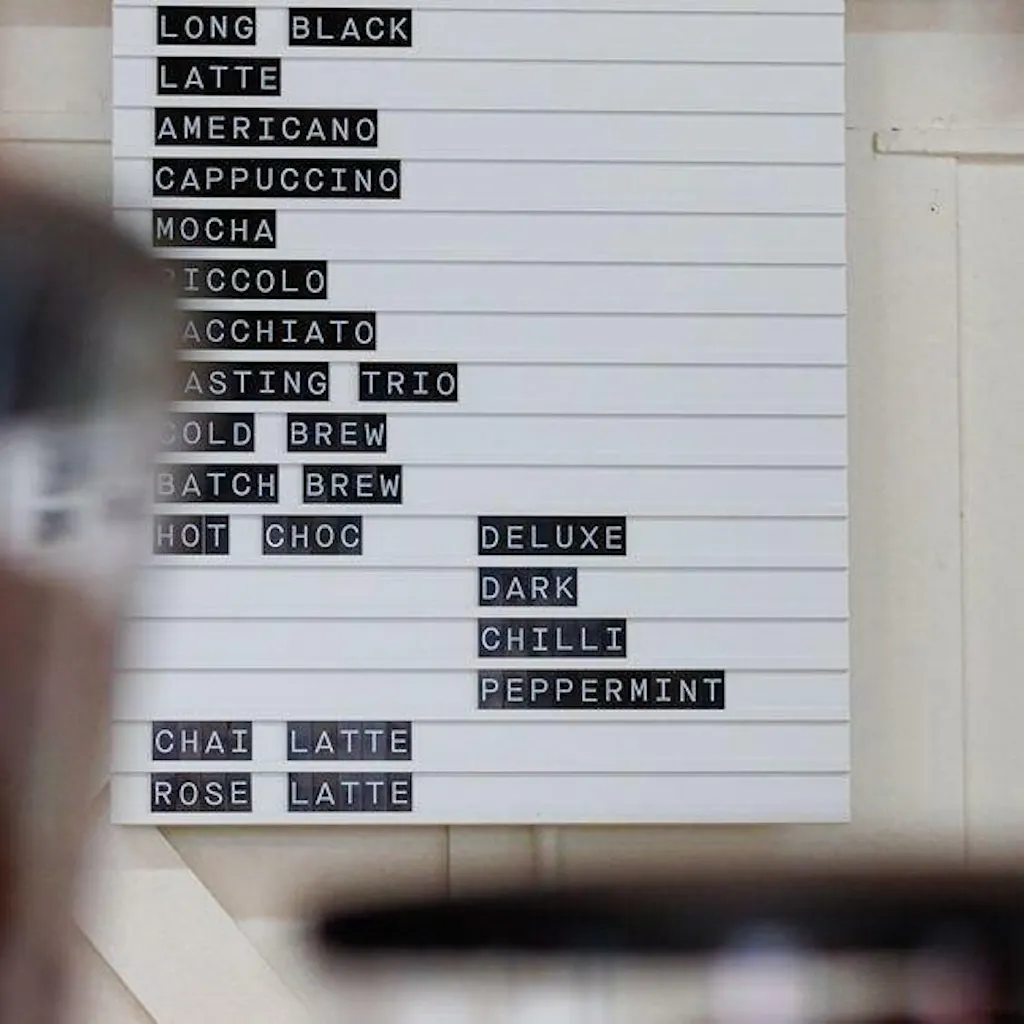 LONG BLACK
LATTE
AMERICANO
CAPPUCCINO
MOCHA
PICCOLO
MACCHIATO
TASTING TRIO
COLD BREW
BATCH BREW
HOT CHOC DELUXE
DARK
CHILLI
PEPPERMINT
CHAI LATTE
ROSE LATTE